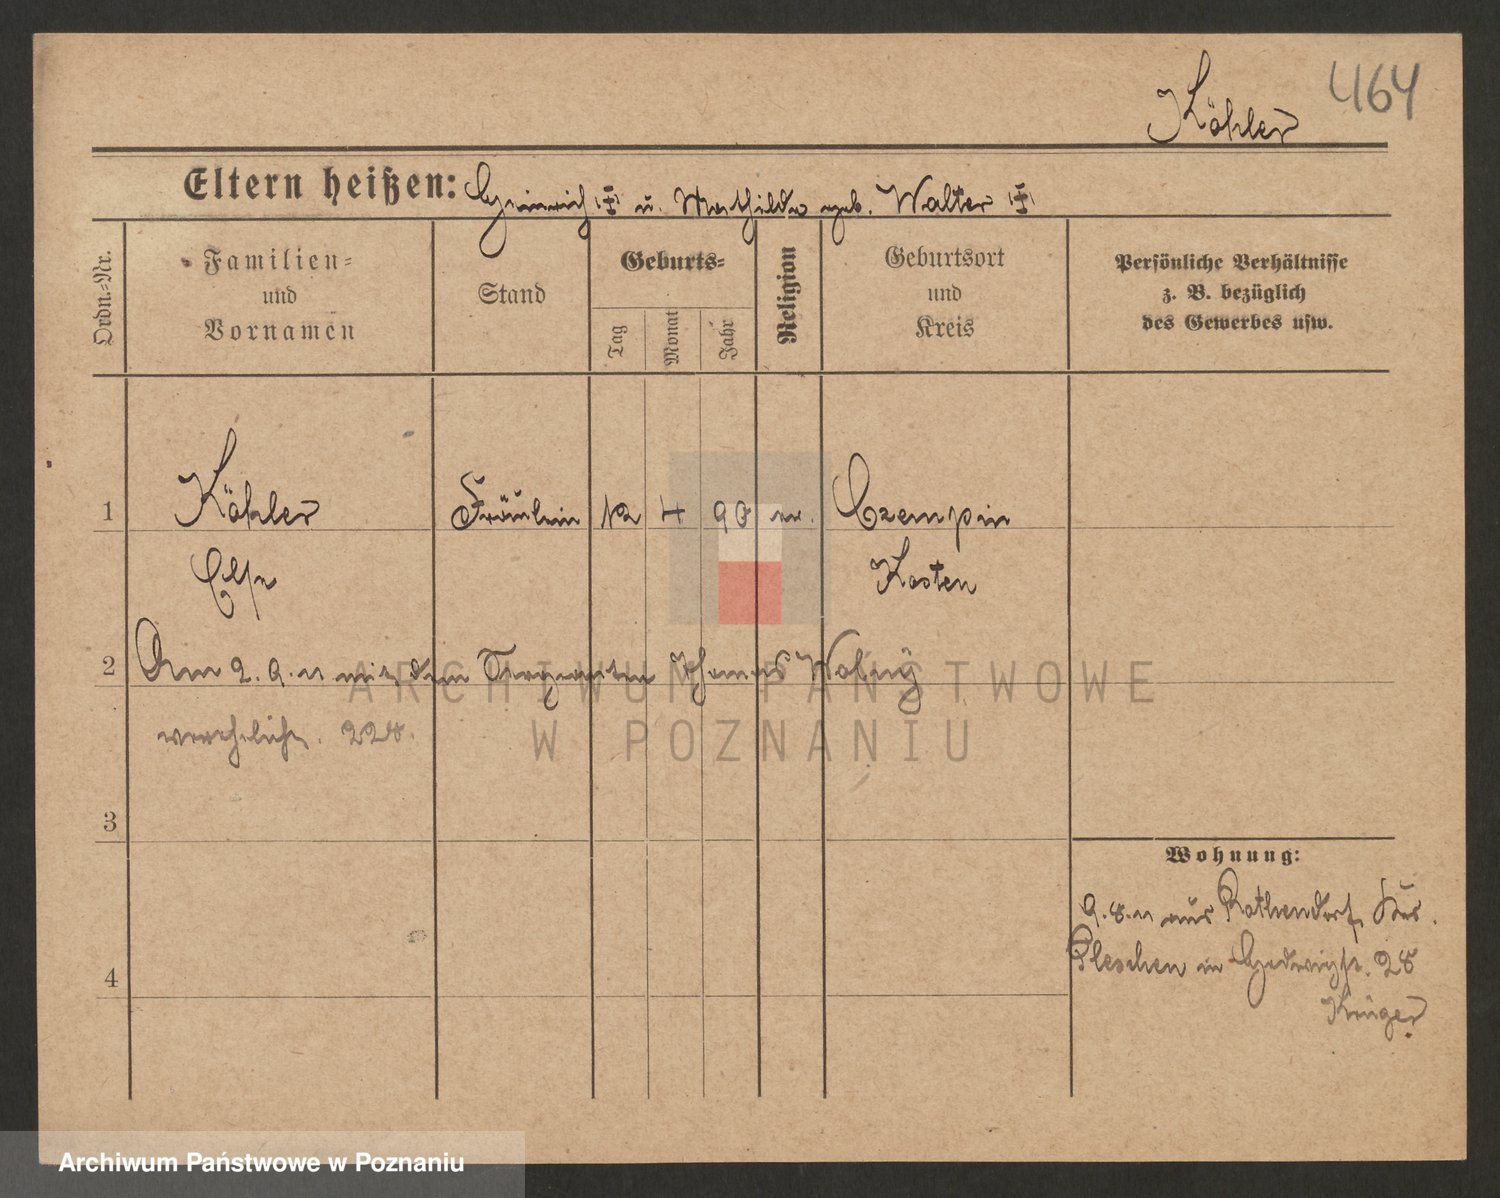 464
Köhler
Eltern heißen: Heinrich u. Mathilde geb. Walter
Ordn.-Nr.
Familien- und Vornamen
Stand
Geburts-
Tag
Monat
Jahr
Religion
Geburtsort und Kreis
Persönliche Verhältnisse
z. B. bezüglich
des Gewerbes usw.
1 Köhler Fräulein 12 4 90 ev. Czempin
Else Kosten
2 Am 2. 9. 11 mit dem Sergeanten Thomas Wolny
verehelicht. 228.
3
Wohnung:
9. 8. 11 aus Rothendorf Krs.
4 Pleschen in Hedwigst. 28
Krüger
ARCHIWUM PAŃSTWOWE
W POZNANIU
Archiwum Państwowe w Poznaniu